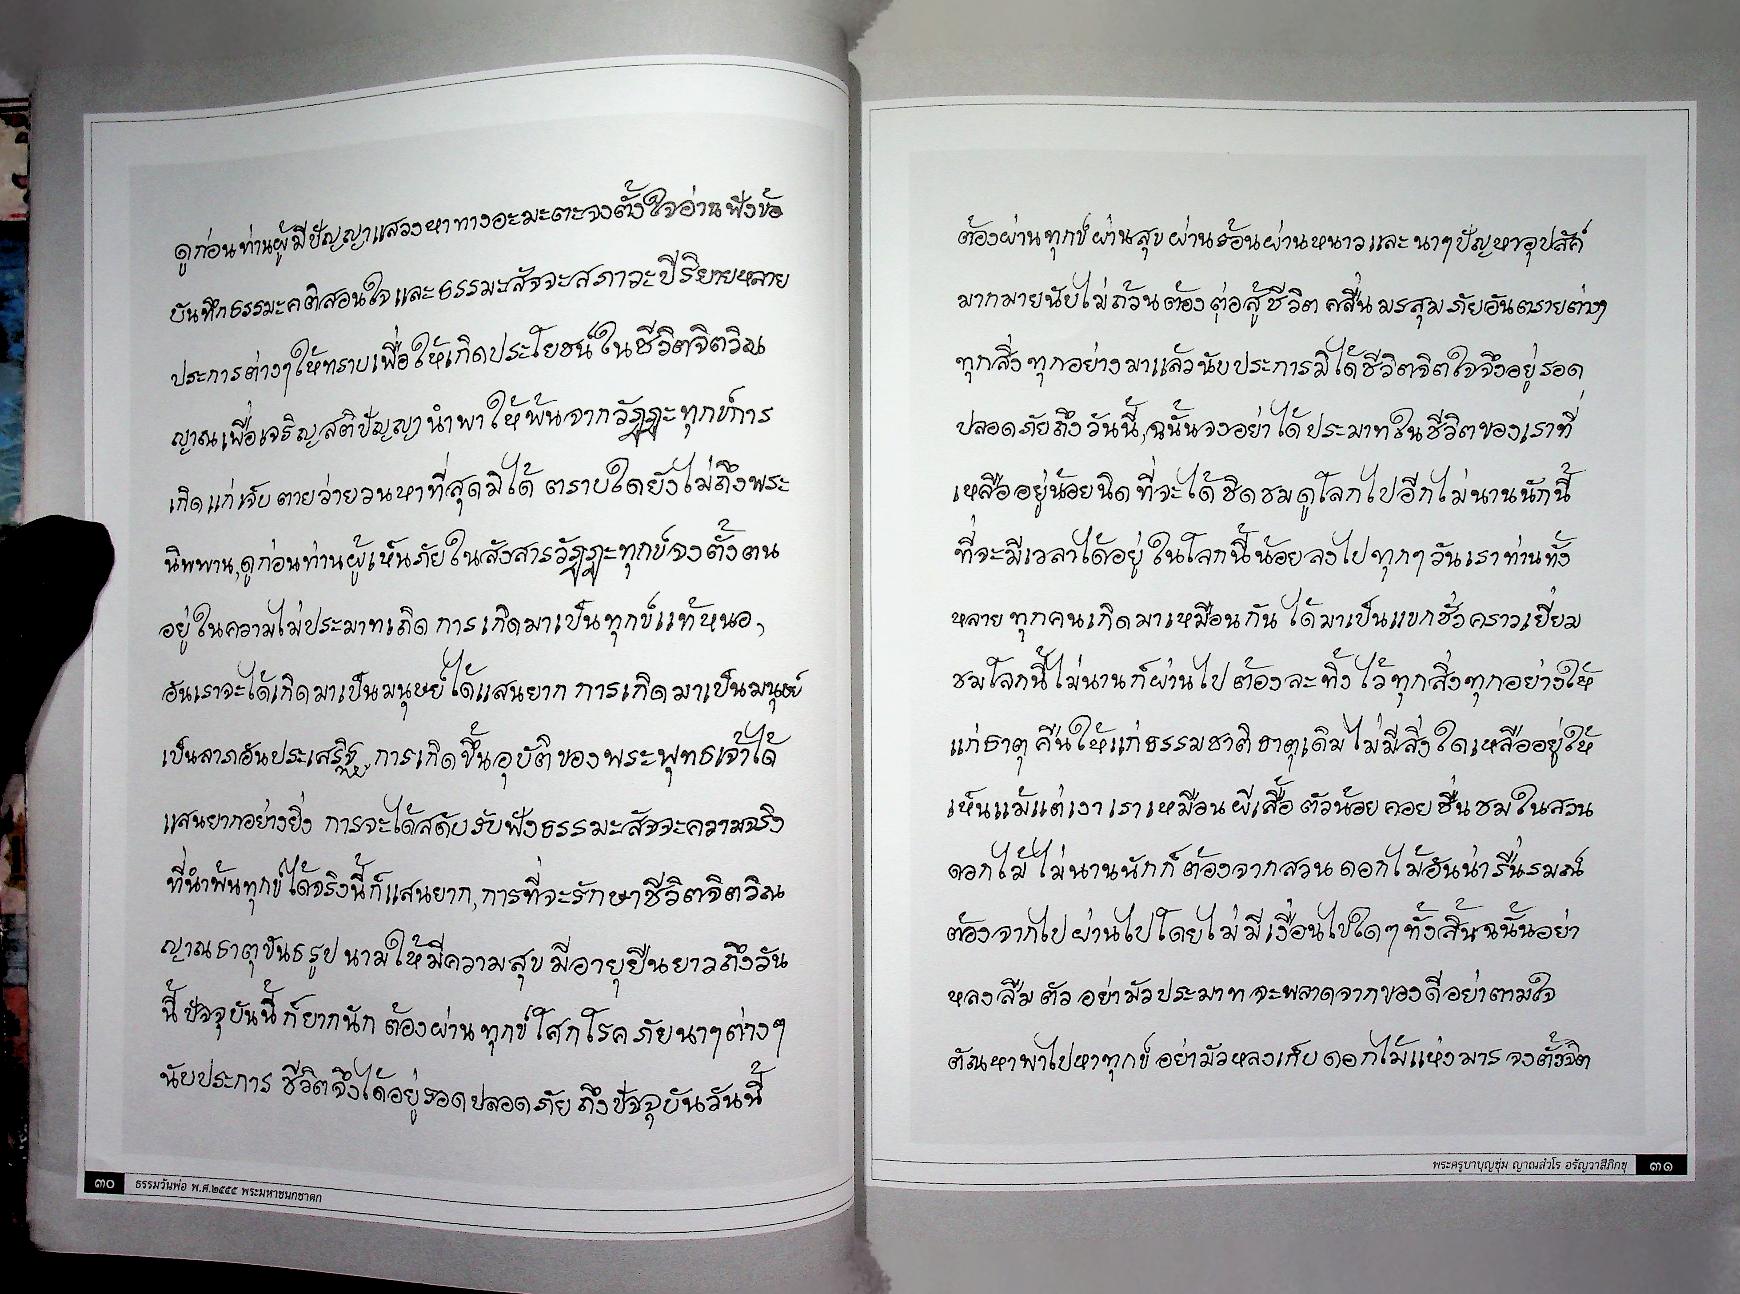 ดูก่อนท่านผู้มีปัญญาแสวงหาทางอะมะตะจงตั้งใจอ่านฟังข้อ
บันทึกธรรมะคติสอนใจและธรรมะสัจจะสภาวะปริยายหลาย
ประการต่างๆให้ทราบเพื่อให้เกิดประโยชน์ในชีวิตจิตวิณ
ญาณเพื่อเจริญสติปัญญานำพาให้พ้นจากวัฏฏะทุกข์การ
เกิดแก่เจ็บตายว่ายวนหาที่สุดมิได้ ตราบใดยังไม่ถึงพระ
นิพพาน,ดูก่อนท่านผู้เห็นภัยในสังสารวัฏฏะทุกข์จงตั้งตน
อยู่ในความไม่ประมาทเถิด การเกิดมาเป็นทุกข์แท้หนอ,
อันเราจะได้เกิดมาเป็นมนุษย์ได้แสนยาก การเกิดมาเป็นมนุษย์
เป็นลาภอันประเสริฐ,การเกิดขึ้นอุบัติของพระพุทธเจ้าได้
แสนยากอย่างยิ่ง การจะได้สดับรับฟังธรรมะสัจจะความจริง
ที่นำพ้นทุกข์ได้จริงนี้ก็แสนยาก,การที่จะรักษาชีวิตจิตวิณ
ญาณธาตุขันธรูปนามให้มีความสุขมีอายุยืนยาวถึงวัน
นี้ปัจจุบันนี้ก็ยากนัก ต้องผ่านทุกข์โศกโรคภัยนาๆต่างๆ
นับประการ ชีวิตจึงได้อยู่รอดปลอดภัยถึงปัจจุบันวันนี้
๓๐ ธรรมวันพ่อ พ.ศ.๒๕๕๕ พระมหาชนกชาดก
ต้องผ่านทุกข์ผ่านสุขผ่านร้อนผ่านหนาวและนาๆปัญหาอุปสัค์
มากมายนับไม่ถ้วนต้องต่อสู้ชีวิต คลื่นมรสุมภัยอันตรายต่างๆ
ทุกสิ่งทุกอย่างมาแล้วนับประการมิได้ชีวิตจิตใจจึงอยู่รอด
ปลอดภัยถึงวันนี้,ฉนั้นจงอย่าได้ประมาทในชีวิตของเราที่
เหลืออยู่น้อยนิดที่จะได้ชิดชมดูโลกไปอีกไม่นานนักนี้
ที่จะมีเวลาได้อยู่ในโลกนี้น้อยลงไปทุกๆวันเราท่านทั้ง
หลายทุกคนเกิดมาเหมือนกันได้มาเป็นแขกชั่วคราวเยี่ยม
ชมโลกนี้ไม่นานก็ผ่านไปต้องละทิ้งไว้ทุกสิ่งทุกอย่างให้
แก่ธาตุคืนให้แก่ธรรมชาติธาตุเดิมไม่มีสิ่งใดเหลืออยู่ให้
เห็นแม้แต่เงาเราเหมือนผีเสื้อตัวน้อยคอยชื่นชมในสวน
ดอกไม้ไม่นานนักก็ต้องจากสวนดอกไม้อันน่ารื่นรมณ์
ต้องจากไปผ่านไปโดยไม่มีเงื่อนไขใดๆทั้งสิ้นฉนั้นอย่า
หลงลืมตัวอย่ามัวประมาทจะพลาดจากของดีอย่าตามใจ
ตัณหาพาไปหาทุกข์ อย่ามัวหลงเก็บดอกไม้แห่งมาร จงตั้งจิต
พระครูบาบุญชุ่ม ญาณสํวโร อรัญวาสีภิกขุ ๓๑